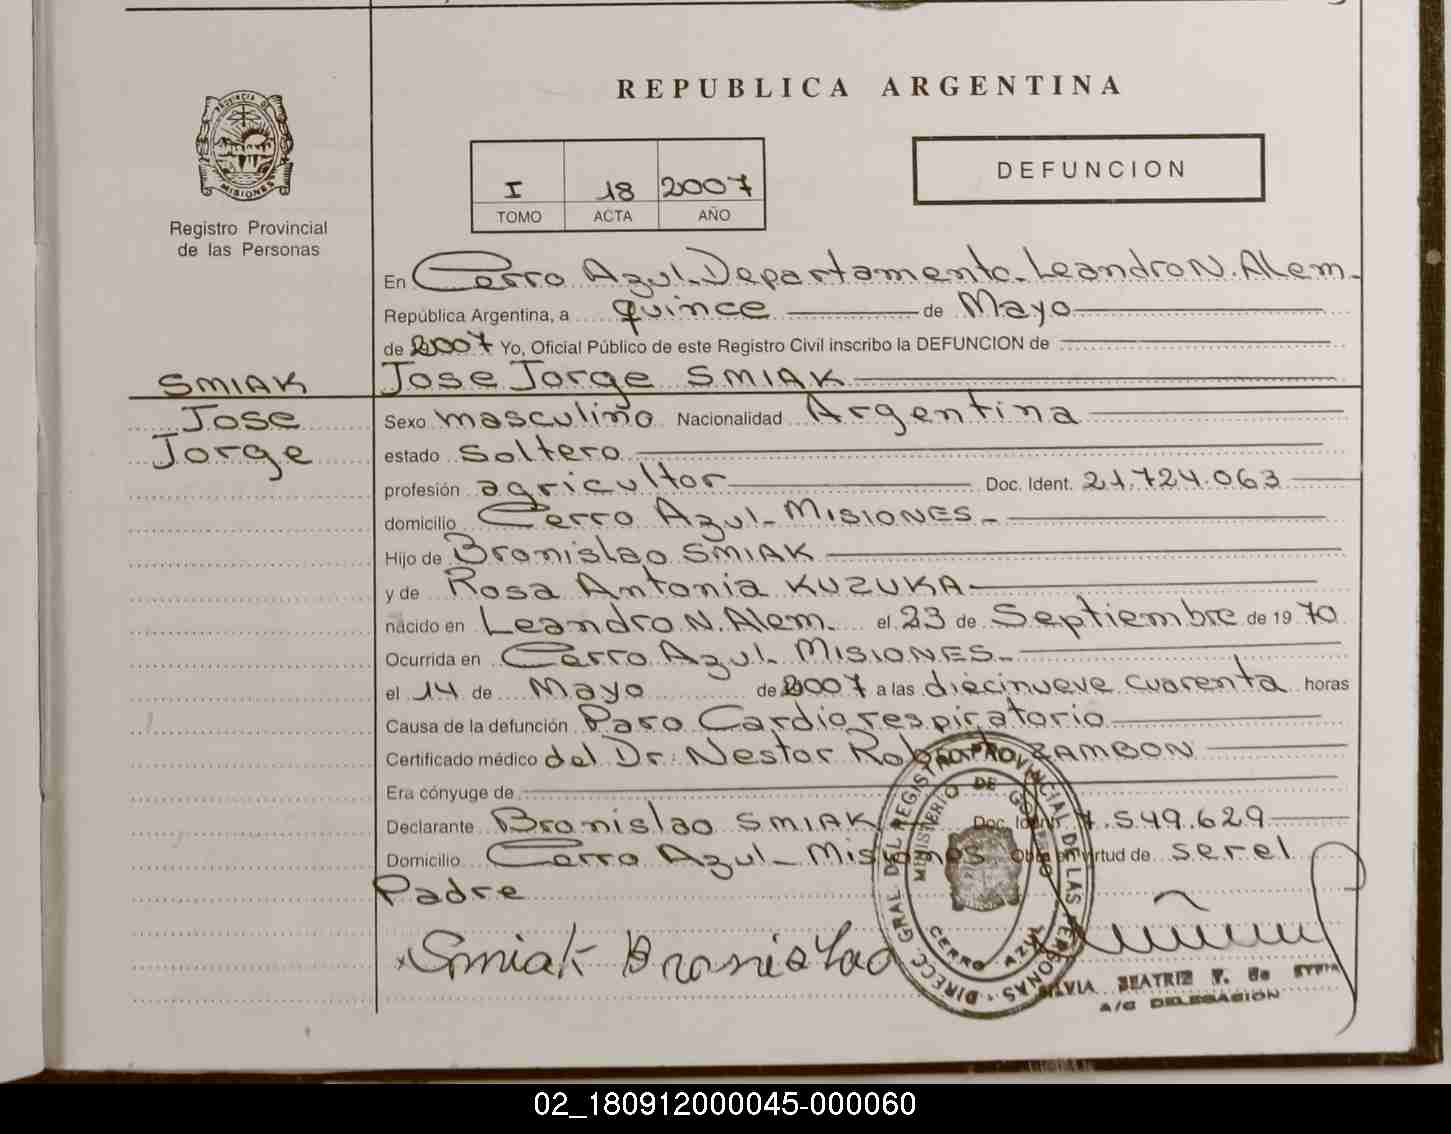 REPUBLICA ARGENTINA
PROVINCIA DE
MISIONES
Registro Provincial
de las Personas
I 18 2007
TOMO ACTA AÑO
DEFUNCION
En Cerro Azul. Departamento. Leandro N. Alem.
República Argentina, a quince de Mayo
de 2007 Yo, Oficial Público de este Registro Civil inscribo la DEFUNCION de
SMIAK
Jose
Jorge
Jose Jorge SMIAK
Sexo masculino Nacionalidad Argentina
estado Soltero
profesión agricultor Doc. Ident. 21.724.063
domicilio Cerro Azul - MISIONES -
Hijo de Bronislao SMIAK
y de Rosa Antonia KUZUKA
nacido en Leandro N. Alem. el 23 de Septiembre de 1970
Ocurrida en Cerro Azul. MISIONES.
el 14 de Mayo de 2007 a las diecinueve cuarenta horas
Causa de la defunción Paro Cardiorespiratorio
Certificado médico del Dr. Nestor Roberto ZAMBON
Era cónyuge de
Declarante Bronislao SMIAK Doc. Ident. 7.549.629
Domicilio Cerro Azul - Misiones Obra en virtud de ser el
Padre
Smiak Bronislao
DIRECC. GRAL DEL REGISTRO PROVINCIAL DE LAS PERSONAS
MINISTERIO DE GOBIERNO
CERRO AZUL
SILVIA BEATRIZ de
A/C DELEGACION
02_180912000045-000060